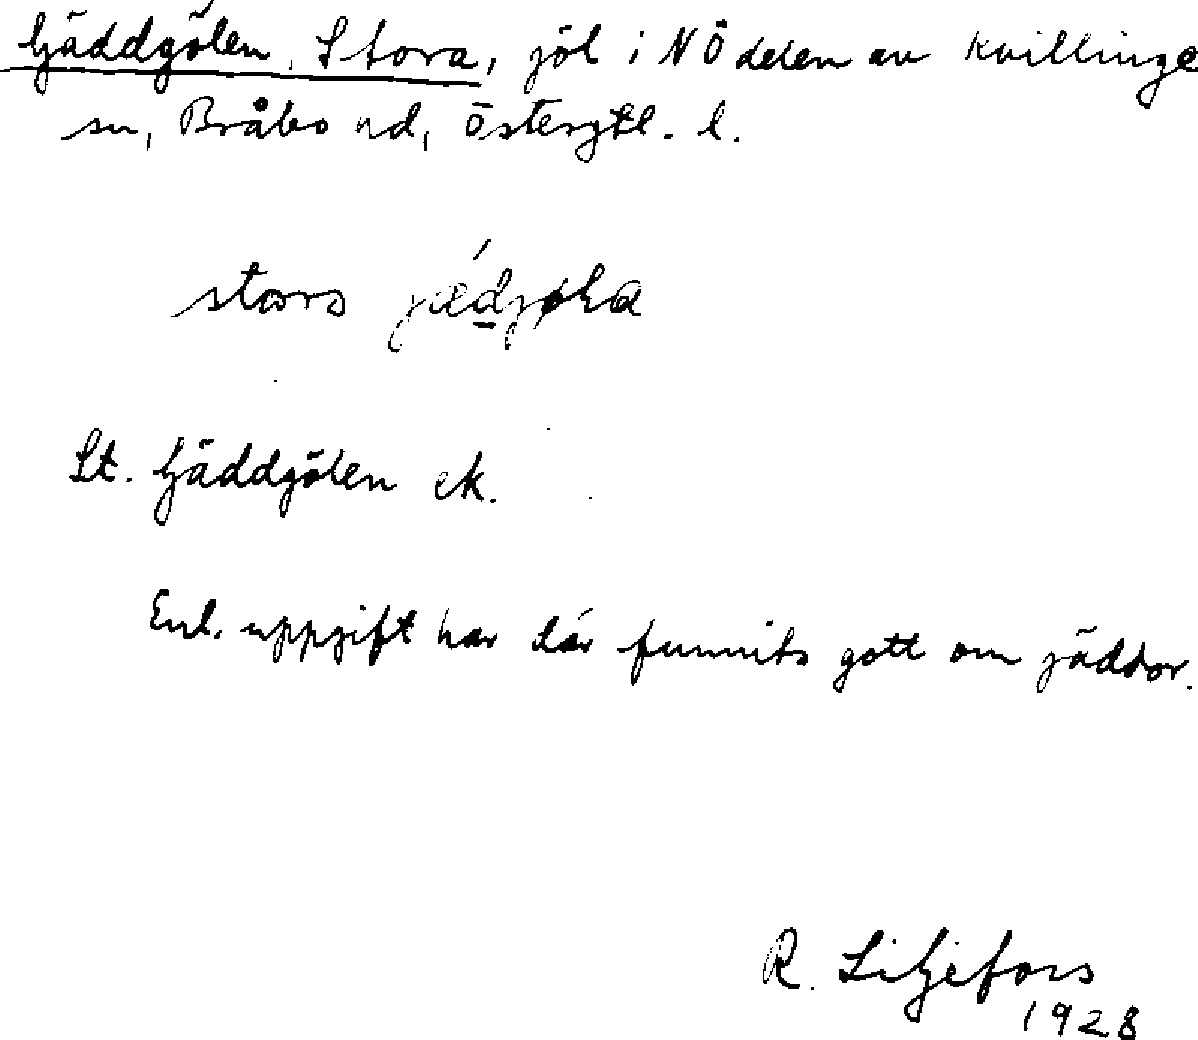 Gäddgölen, Stora, jöl i NÖ delen av Kvillinge
sn, Bråbo hd, Östergtl. l.
St. Gäddgölen ek.
Enl. uppgift har där funnits gott om jäddor.
R. Liljefors
1928